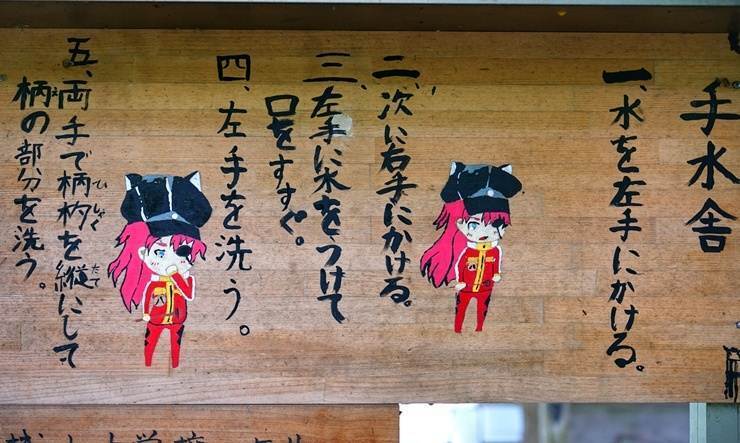 手水舎
一、水を左手にかける。
二、次に右手にかける。
三、左手に水をうけて
口をすすぐ。
四、左手を洗う。
五、両手で柄杓を縦にして
ひしゃく
たて
柄の部分を洗う。